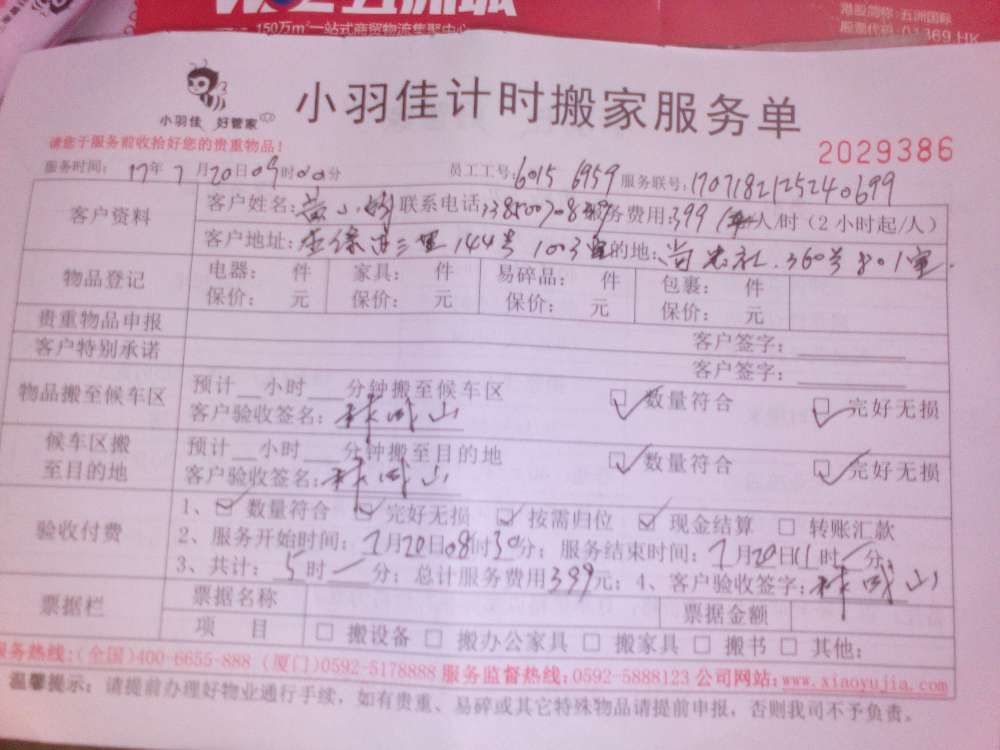 150万m²一站式商贸物流集聚中心
港股简称:五洲国际
股票代码:01369.HK
小羽佳 好管家
小羽佳计时搬家服务单
请您于服务前收拾好您的贵重物品!
2029386
服务时间: 17年7月20日09时00分 员工工号:6015 6959 服务联号:1707182125240699
客户资料
客户姓名: 联系电话: 服务费用:399 人/时(2小时起/人)
客户地址: 三里144号1003室 目的地: 360号801室
物品登记
电器: 件 家具: 件 易碎品: 件 包裹: 件
保价: 元 保价: 元 保价: 元 保价: 元
贵重物品申报 客户签字:
客户特别承诺 客户签字:
物品搬至候车区
预计__小时__分钟搬至候车区 数量符合 完好无损
客户验收签名:林成山
候车区搬至目的地
预计__小时__分钟搬至目的地 数量符合 完好无损
客户验收签名:林成山
验收付费
1、数量符合 完好无损 按需归位 现金结算 转账汇款
2、服务开始时间:7月20日08时30分;服务结束时间:7月20日11时/分;
3、共计:5时/分;总计服务费用399元;4、客户验收签字:林成山
票据栏
票据名称 票据金额
项 目 搬设备 搬办公家具 搬家具 搬书 其他:
服务热线:(全国)400-6655-888 (厦门)0592-5178888 服务监督热线:0592-5888123 公司网站:www.xiaoyujia.com
温馨提示:请提前办理好物业通行手续,如有贵重、易碎或其它特殊物品请提前申报,否则我司不予负责。